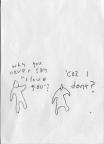 why you
never say
"i love
you"?
'coz i
dont?